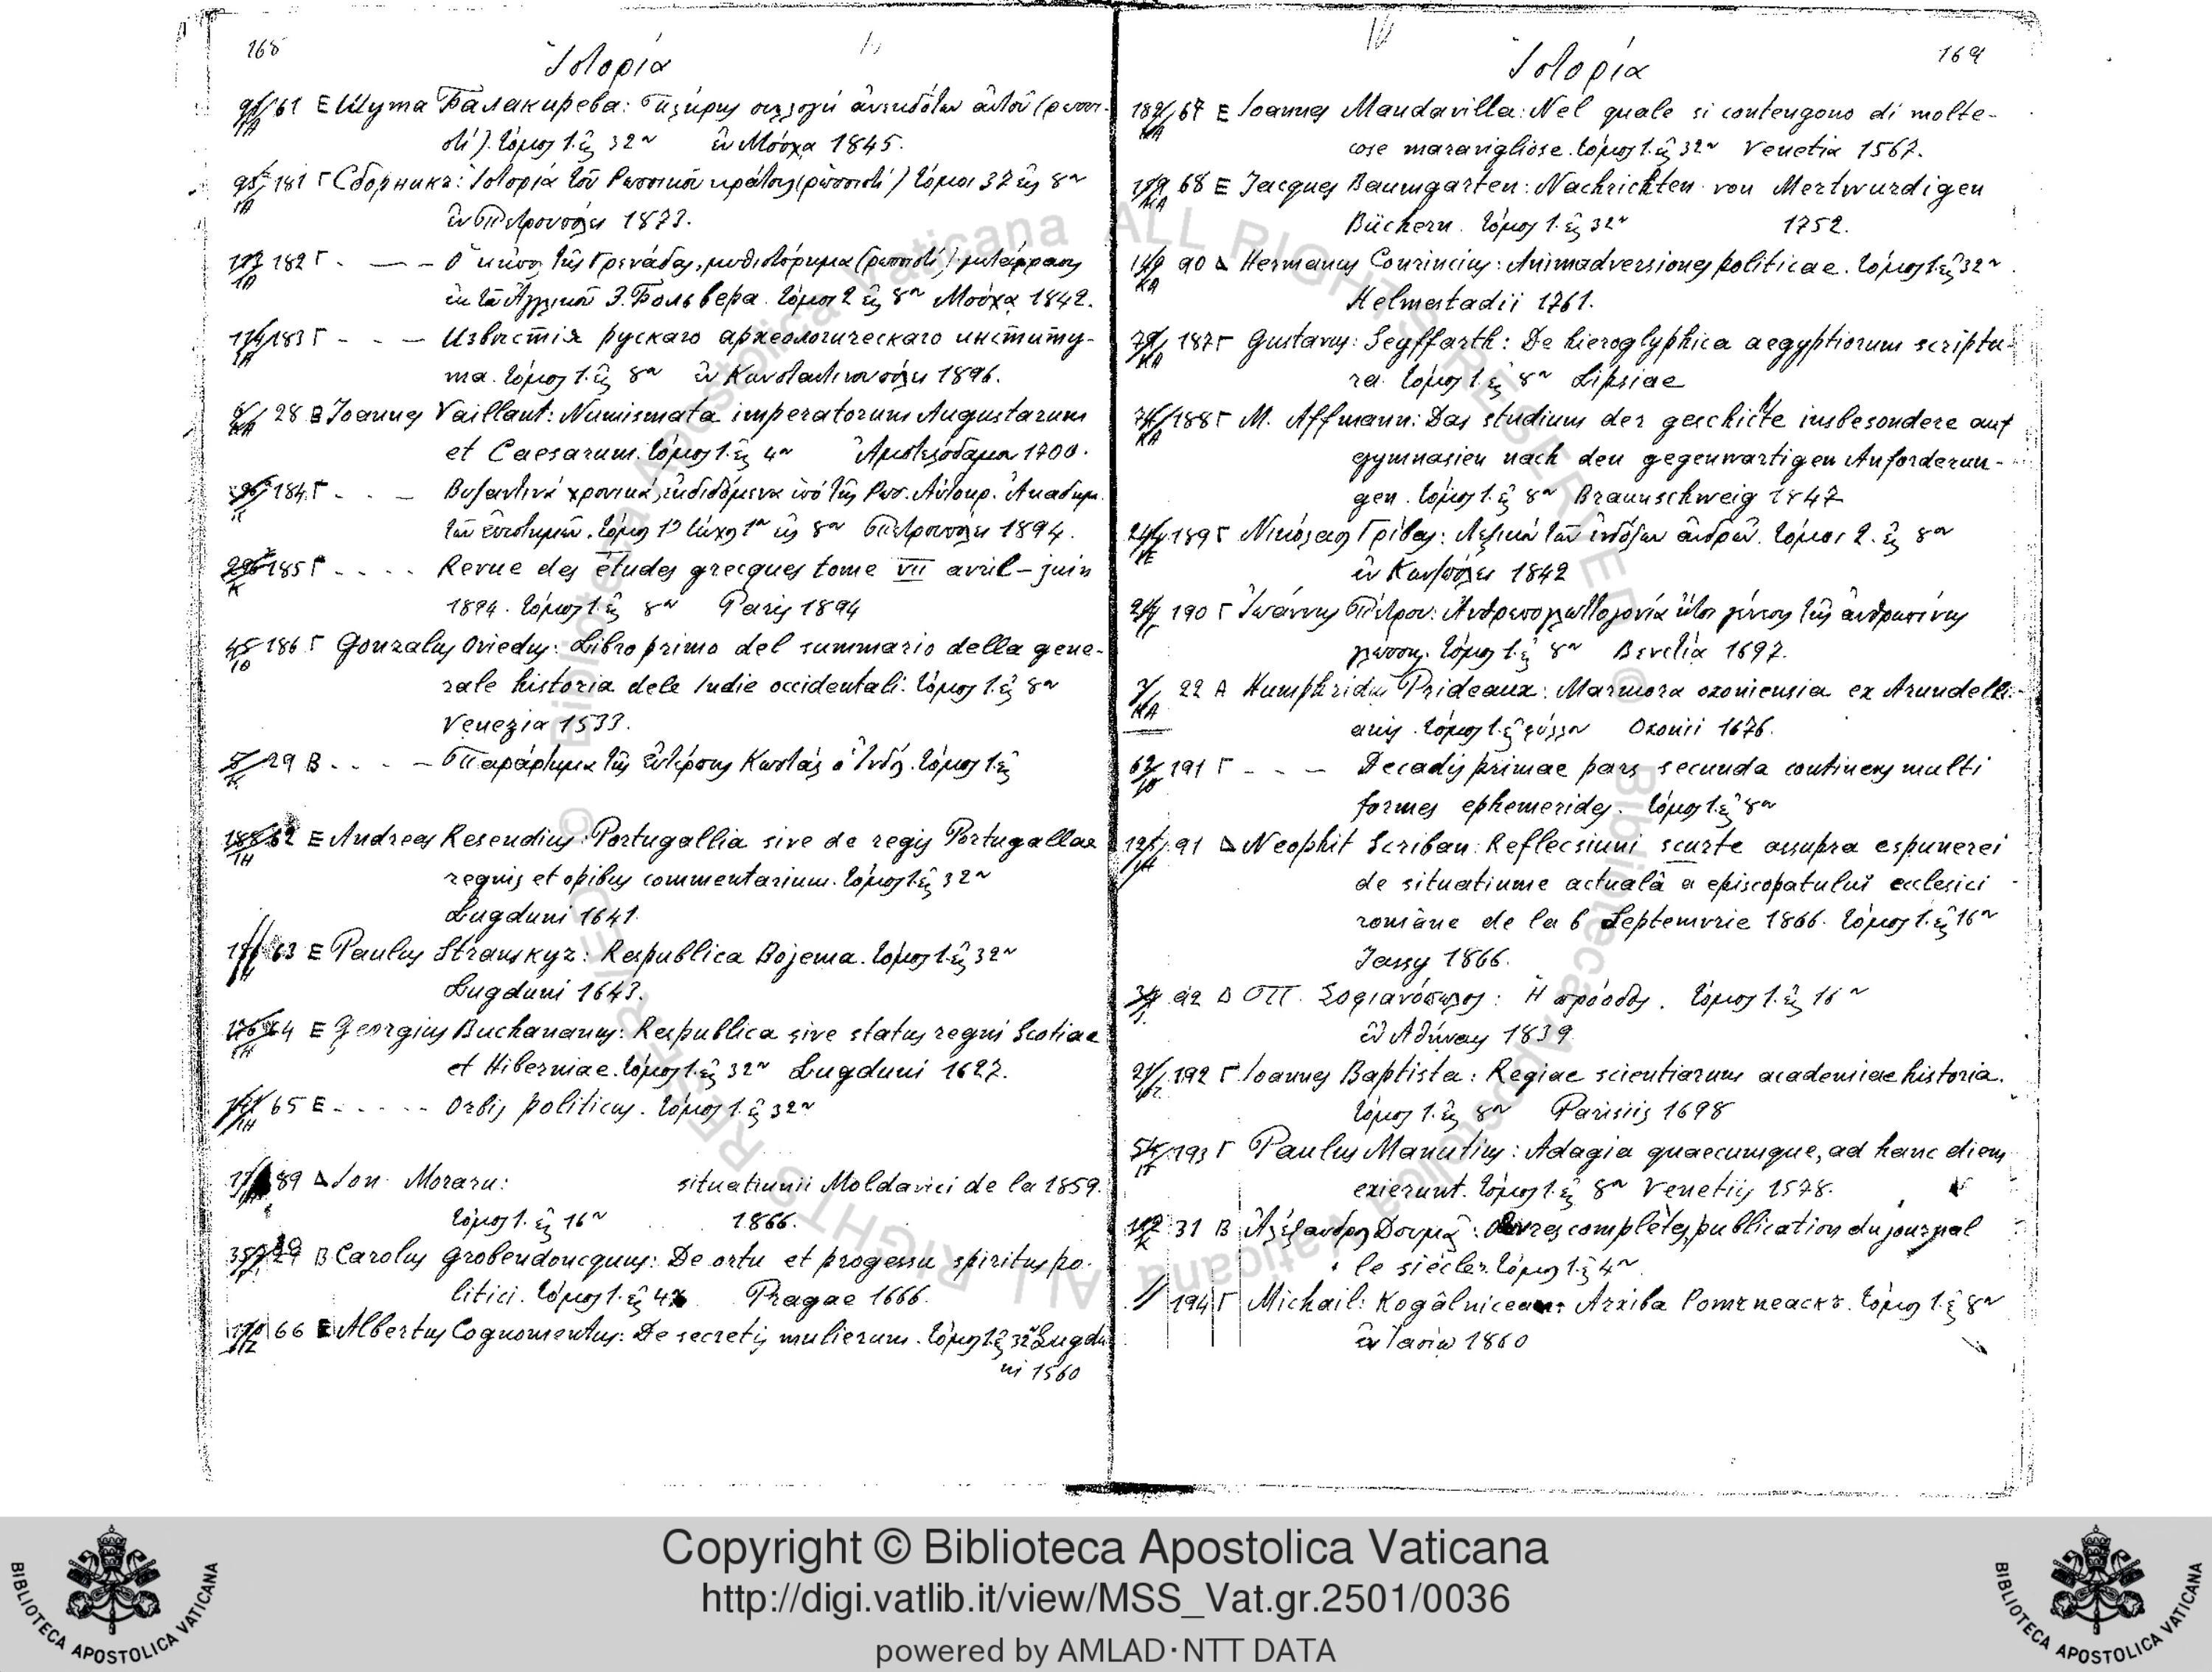 168
Ἱστορία
61 Ε Шута Балакирева: Πλήρης συλλογὴ ἀνεκδότων αὐτοῦ (ρωσσι-
στί). τόμος 1. εἰς 32ον ἐν Μόσχᾳ 1845.
181 Γ Сборникъ: Ἱστορία τοῦ Ρωσσικοῦ κράτους (ρωσσιστί) τόμοι 37 εἰς 8ον
ἐν Πετρουπόλει 1873.
182 Γ. — — Ὁ κῆπος τῆς Γρενάδας, μυθιστόρημα (ρωσσιστί) μετάφρασις
ἐκ τοῦ Ἀγγλικοῦ Э. Больвера. τόμοι 2 εἰς 8ον Μόσχᾳ 1842.
174 183 Γ - - — Извѣстія рускаго археологическаго институ-
та. τόμος 1. εἰς 8ον ἐν Κωνσταντινουπόλει 1896.
28 Β Joannes Vaillant: Numismata imperatorum Augustarum
et Caesarum. τόμος 1. εἰς 4ον Ἀμστελόδαμον 1700.
184. Γ. . — Βυζαντινὰ χρονικά, ἐκδιδόμενα ὑπὸ τῆς Ρωσ. Αὐτοκρ. Ἀκαδημ.
τῶν ἐπιστημῶν. τόμος 1ος τεῦχος 1ον εἰς 8ον Πετρουπόλει 1894.
185 Γ. . . . Revue des études grecques tome VII avril – juin
1894. τόμος 1. εἰς 8ον Paris 1894
45 10 186 Γ Gonzalus Oviedus: Libro primo del summario della gene-
rale historia dele Indie occidentali. τόμος 1. εἰς 8ον
Venezia 1533.
29 Β. . . — Παράρτημα τῆς Εὐτέρπης Κωστᾶς ὁ Ἰνδός. τόμος 1. εἰς
62 Ε Andreas Resendius: Portugallia sive de regis Portugallae
regnis et opibus commentarium. τόμος 1. εἰς 32ον
Lugduni 1641.
63 Ε Paulus Stranskyz: Respublica Bojema. τόμος 1. εἰς 32ον
Lugduni 1643.
64 Ε Georgius Buchananus: Respublica sive status regni Scotiae
et Hiberniae. τόμος 1. εἰς 32ον Lugduni 1627.
65 Ε. . . . . Orbis politicus. τόμος 1. εἰς 32ον
89 Δ Ion Moraru: situatiunii Moldavici de la 1859.
τόμος 1. εἰς 16ον 1866.
Β Carolus Grobendoncquus: De ortu et progessu spiritus po-
litici. τόμος 1. εἰς 4ον Pragae 1666.
66 Ε Albertus Cognomentus: De secretis mulierum. τόμος 1. εἰς 32ον Lugdu
ni 1560
169
Ἱστορία
67 Ε Ioannes Mandavilla: Nel quale si contengono di molte-
cose maravigliose. τόμος 1. εἰς 32ον Venetia 1567.
68 Ε Jacques Baumgarten: Nachrichten von Mertwurdigen
Büchern. τόμος 1. εἰς 32ον 1752.
90 Δ Hermanus Conrincius: Animadversiones politicae. τόμος 1. εἰς 32ον
Helmestadii 1761.
187 Γ Gustavus: Seyffarth: De hieroglyphica aegyptiorum scriptu-
ra. τόμος 1. εἰς 8ον Lipsiae
188 Γ M. Affmann: Das studium der geschichte insbesondere auf
gymnasien nach den gegenwartigen Anforderun-
gen. τόμος 1. εἰς 8ον Braunschweig 1847
189 Γ Νικόλαος Γρίβας: Λεξικὸν τῶν ἐνδόξων ἀνδρῶν. τόμοι 2. εἰς 8ον
ἐν Κων/πόλει 1842
190 Γ Ἰωάννης Πέτρου: Ἀνθρωπογλωττογονία ἤτοι γένεσις τῆς ἀνθρωπίνης
γλώσσης. τόμος 1. εἰς 8ον Βενετία 1697.
22 Α Humphridus Prideaux: Marmora oxoniensia ex Arundelli-
anis. τόμος 1. εἰς φύλλον Oxonii 1676.
191 Γ - - — Decadis primae pars secunda continens multi
formes ephemerides. τόμος 1. εἰς 8ον
91 Δ Neophit Scriban: Reflecsiuni scurte assupra espunerei
de situatiume actualâ a episcopatului ecclesici
române de la 6 Septemvrie 1866. τόμος 1. εἰς 16ον
Jassy 1866.
92 Δ Π. Σοφιανόπουλος: Ἡ πρόοδος. τόμος 1. εἰς 16ον
ἐν Ἀθήναις 1839
192 Γ Ioannes Baptista: Regiae scientiarum academiae historia.
τόμος 1. εἰς 8ον Parisiis 1698
193 Γ Paulus Manutius: Adagia quaecumque, ad hanc diem
exierunt. τόμος 1. εἰς 8ον Venetiis 1578.
31 Β Ἀλέξανδρος Δουμᾶς: Oeuvres complètes, publication du journal
le siècle. τόμος 1. εἰς 4ον
194 Γ Michail: Kogâlniceanu: Arxiba Pomzneackz. τόμος 1. εἰς 8ον
ἐν Ἰασίῳ 1860
Copyright © Biblioteca Apostolica Vaticana
http://digi.vatlib.it/view/MSS_Vat.gr.2501/0036
powered by AMLAD·NTT DATA
BIBLIOTECA APOSTOLICA VATICANA
BIBLIOTECA APOSTOLICA VATICANA